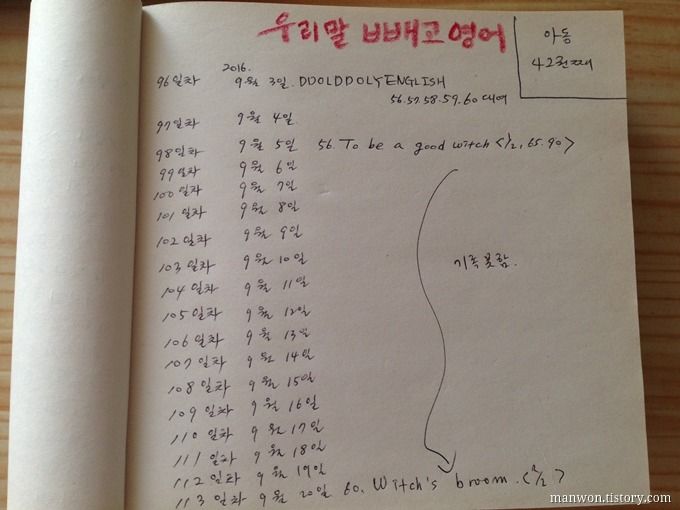 우리말 ㅂ빼고 영어
아동
42권째
2016.
96일차 9월 3일. DDOLDDOLYENGLISH
56.57.58.59.60 대여
97일차 9월 4일
98일차 9월 5일 56. To be a good witch <1/2, 65.90>
99일차 9월 6일
100일차 9월 7일
101일차 9월 8일
102일차 9월 9일
103일차 9월 10일 기록못함.
104일차 9월 11일
105일차 9월 12일
106일차 9월 13일
107일차 9월 14일
108일차 9월 15일
109일차 9월 16일
110일차 9월 17일
111일차 9월 18일
112일차 9월 19일
113일차 9월 20일 60. Witch's broom. <2/2>
manwon.tistory.com